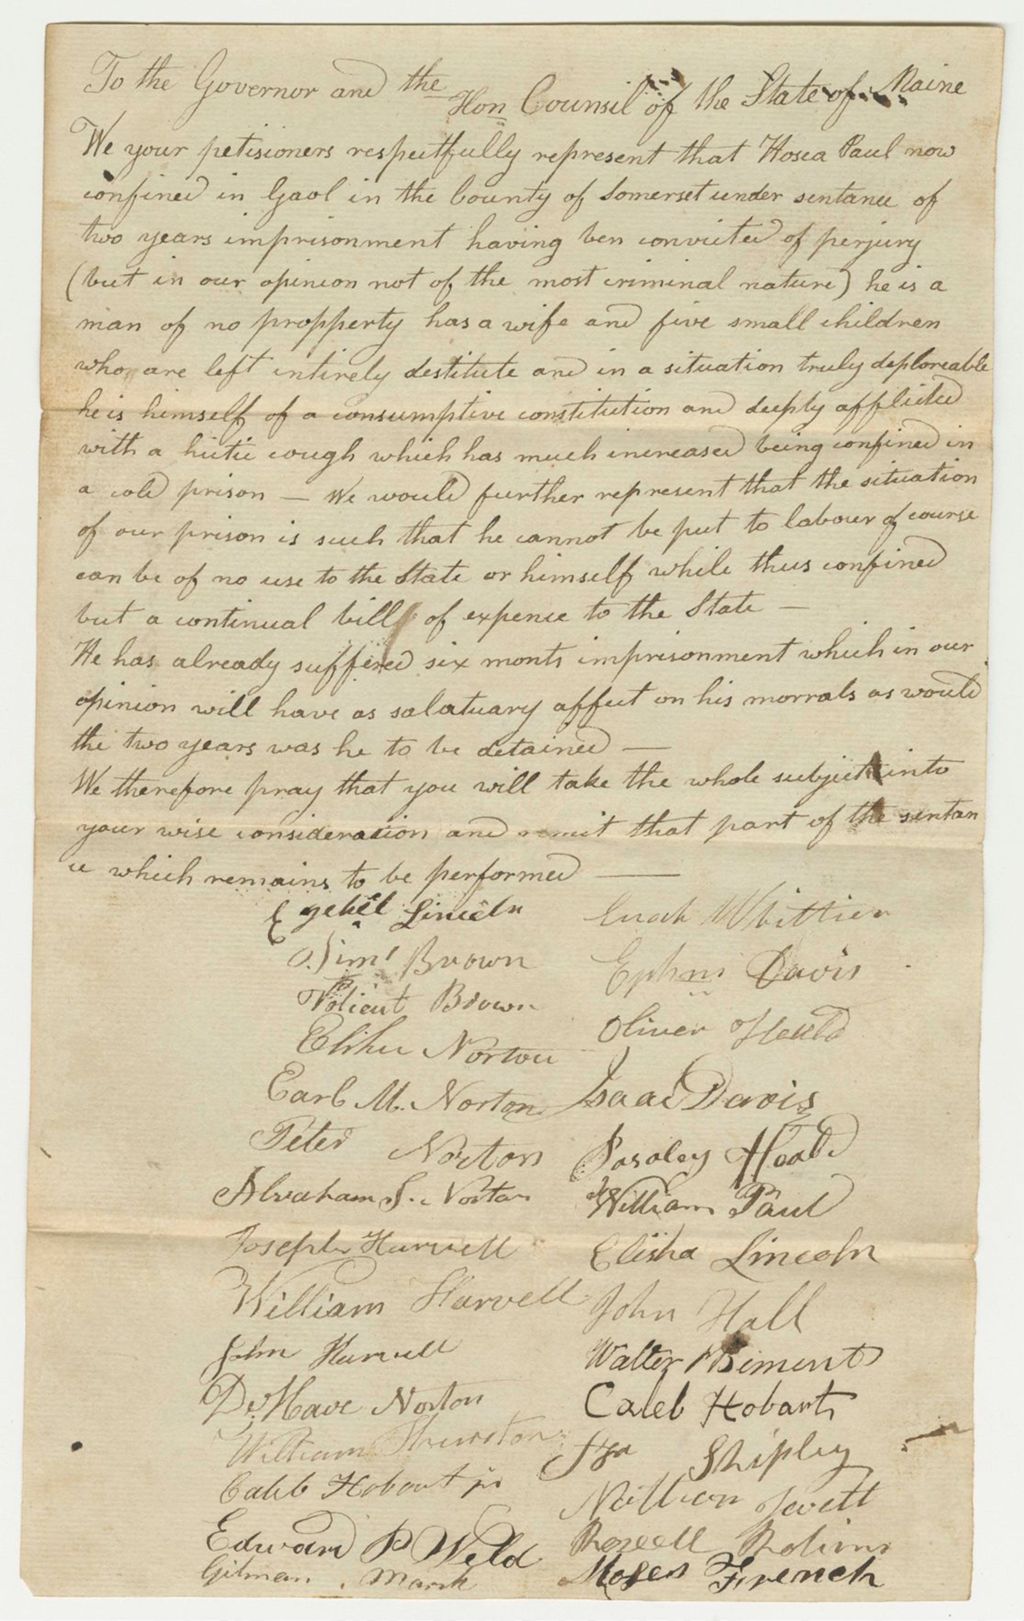 To the Governor and the
Hon Counsil of the State of Maine
We your petisioners respectfully represent that Hosea Paul now
confined in Gaol in the County of Somerset under sentance of
two years imprisonment having ben convicted of perjury
(but in our opinion not of the most criminal nature) he is a
man of no propperty has a wife and five small children
who are left intirely destitute and in a situation truly deploreable
he is himself of a consumptive constitution and deeply afflicted
with a hictic cough which has much increased being confined in
a cold prison — We would further represent that the situation
of our prison is such that he cannot be put to labour of course
can be of no use to the State or himself while thus confined
but a continual bill of expence to the State —
He has already suffered six monts imprisonment which in our
opinion will have as salatuary affect on his morrals as would
the two years was he to be detained —
We therefore pray that you will take the whole subject into
your wise consideration and remit that part of the sentan
ce which remains to be performed —
Ezekel Lincoln
Enoch Whittier
Sim Brown
Ephm Davis
Brown
Oliver Heald
Elihu Norton
Isaac Davis
Earl M. Norton
Peter Norton
Heald
Abraham S. Norton
William Paul
Joseph Harvell
Elisha Lincoln
William Harvell
John Hall
John Harvell
Walter
Norton
Caleb Hobart
William Thurston
Ira Shipley
Caleb Hobart jr
Jewett
Edward P Weld
Rosell Rolins
Gilman Marsh
Moses French